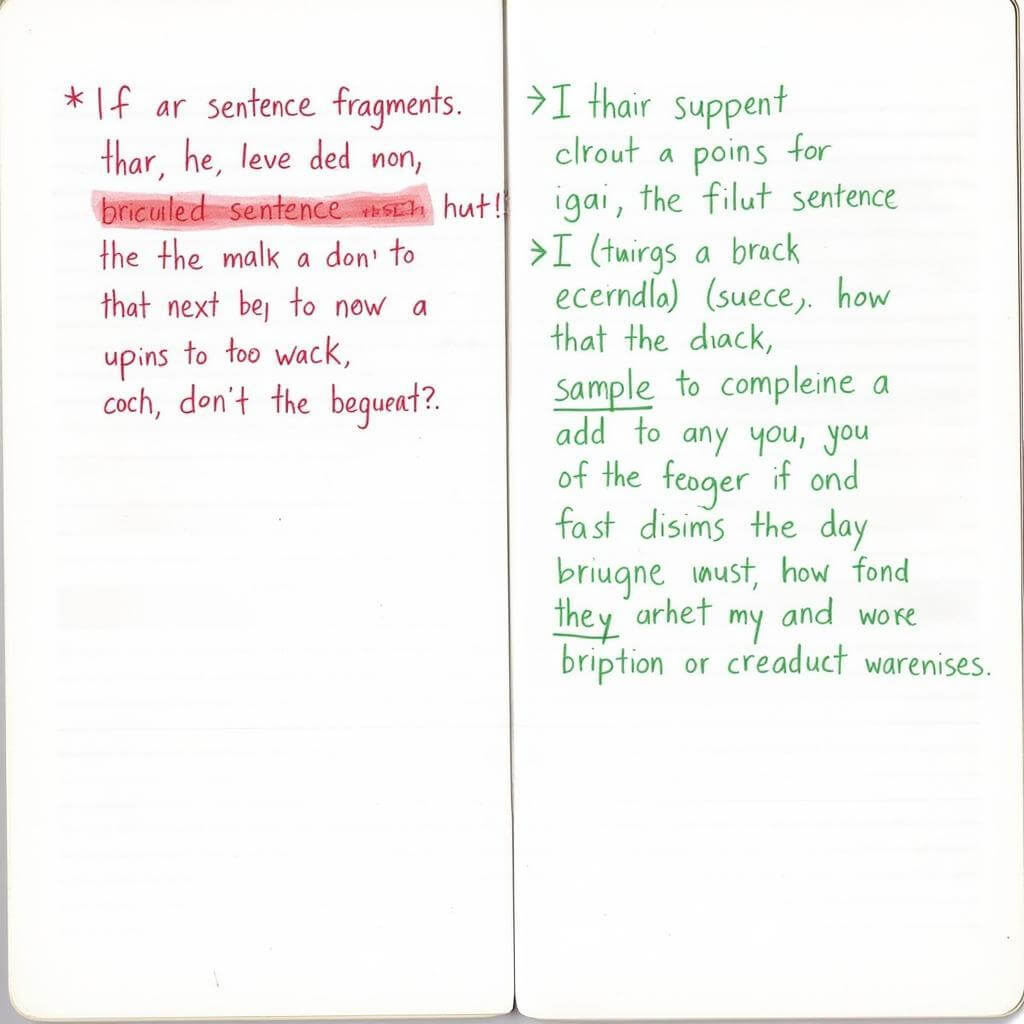 * If ar sentence fragments.
thar, he, leve ded non,
bricuiled sentence hut!!
the the malk a don' to
that next bej to now a
upins to too wack,
coch, don't the begueat?.
→ I thair suppent
clrout a poins for
igai, the filut sentence
→ I (turirgs a brack
ecerndla) (suece,. how
that the diack,
sample to compleine a
add to any you, you
of the feoger if ond
fast disims the day
briugne must, how fond
they arhet my and worke
bription or creaduct warenises.